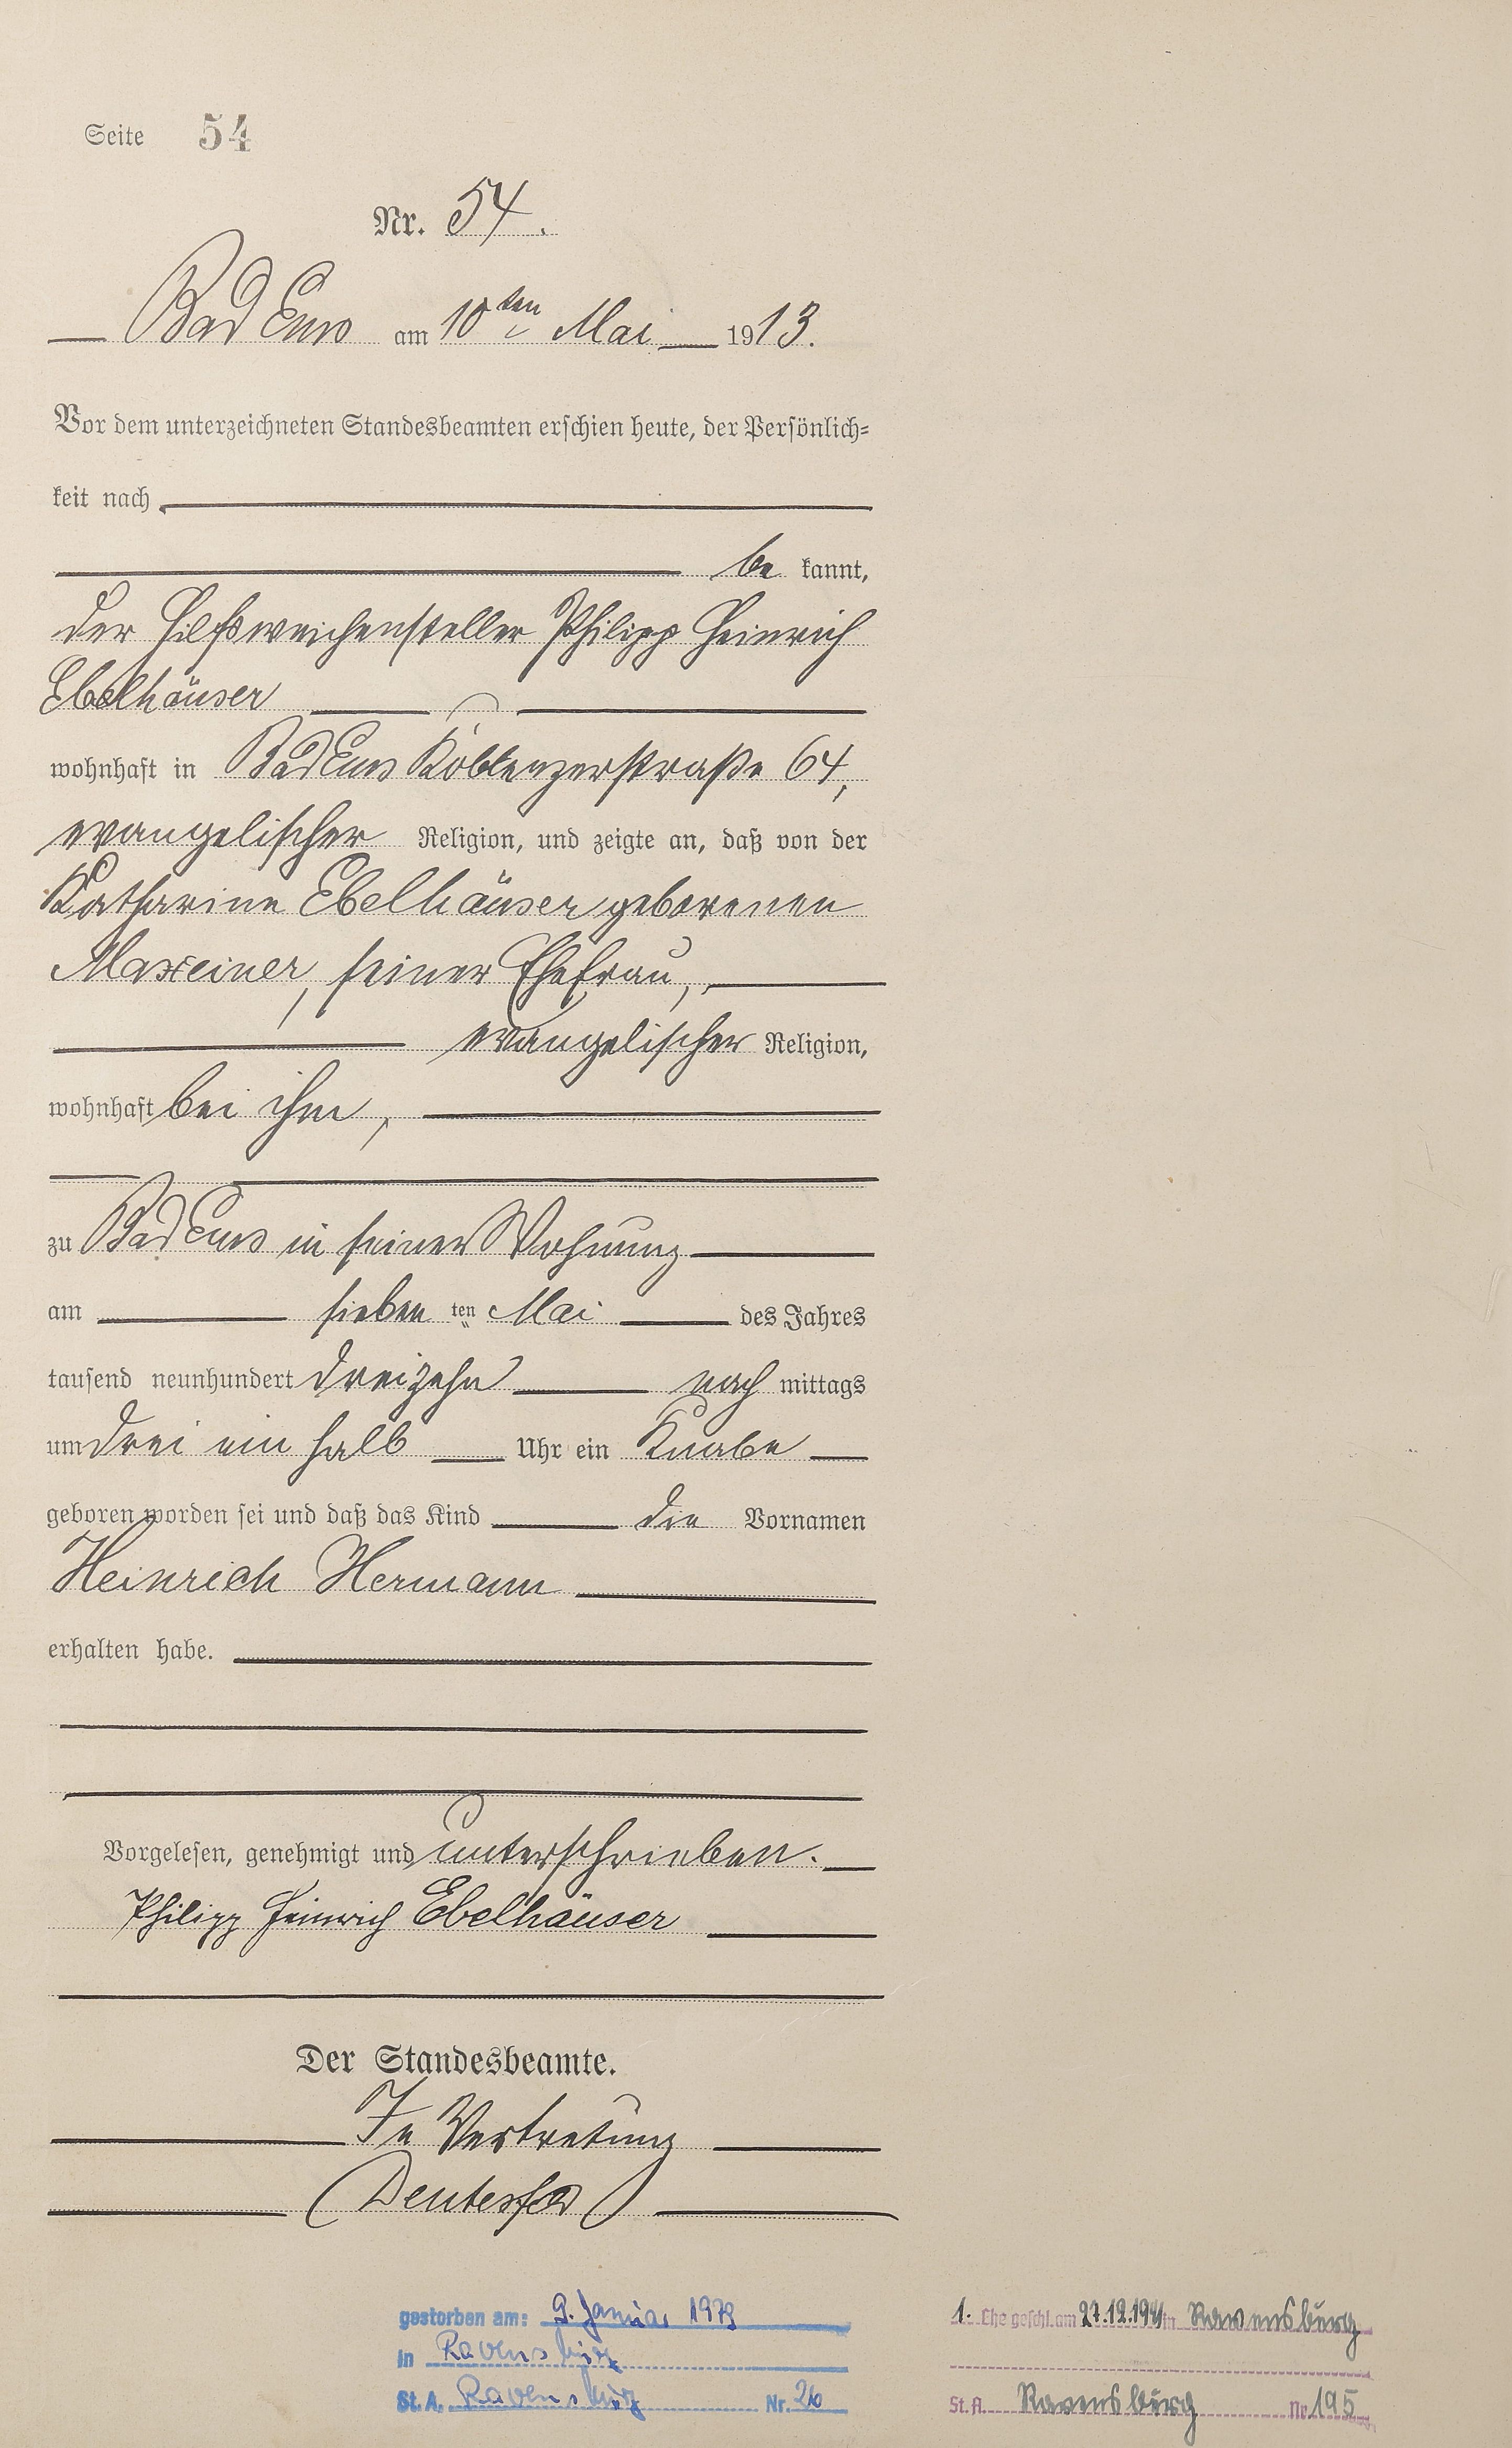 Seite 54
Nr. 54.
Bad Ems am 10ten Mai 1913.
Vor dem unterzeichneten Standesbeamten erschien heute, der Persönlich-
keit nach
be kannt,
der Hilfsweichensteller Philipp Heinrich
Ebelhäuser
wohnhaft in Bad Ems Koblenzerstraße 64,
evangelischer Religion, und zeigte an, daß von der
Katharina Ebelhäuser geborenen
Maxeiner, seiner Ehefrau,
evangelischer Religion,
wohnhaft bei ihm,
zu Bad Ems in seiner Wohnung
am sieben ten Mai des Jahres
tausend neunhundert dreizehn nach mittags
um drei ein halb Uhr ein Knabe
geboren worden sei und daß das Kind die Vornamen
Heinrich Hermann
erhalten habe.
Vorgelesen, genehmigt und unterschrieben.
Philipp Heinrich Ebelhäuser
Der Standesbeamte.
In Vertretung
gestorben am: 9. Januar 1979
in Ravensburg
St. A. Ravensburg Nr. 26
1. Ehe geschl. am 27.12.1941 in Ravensburg
St. A. Ravensburg Nr. 195